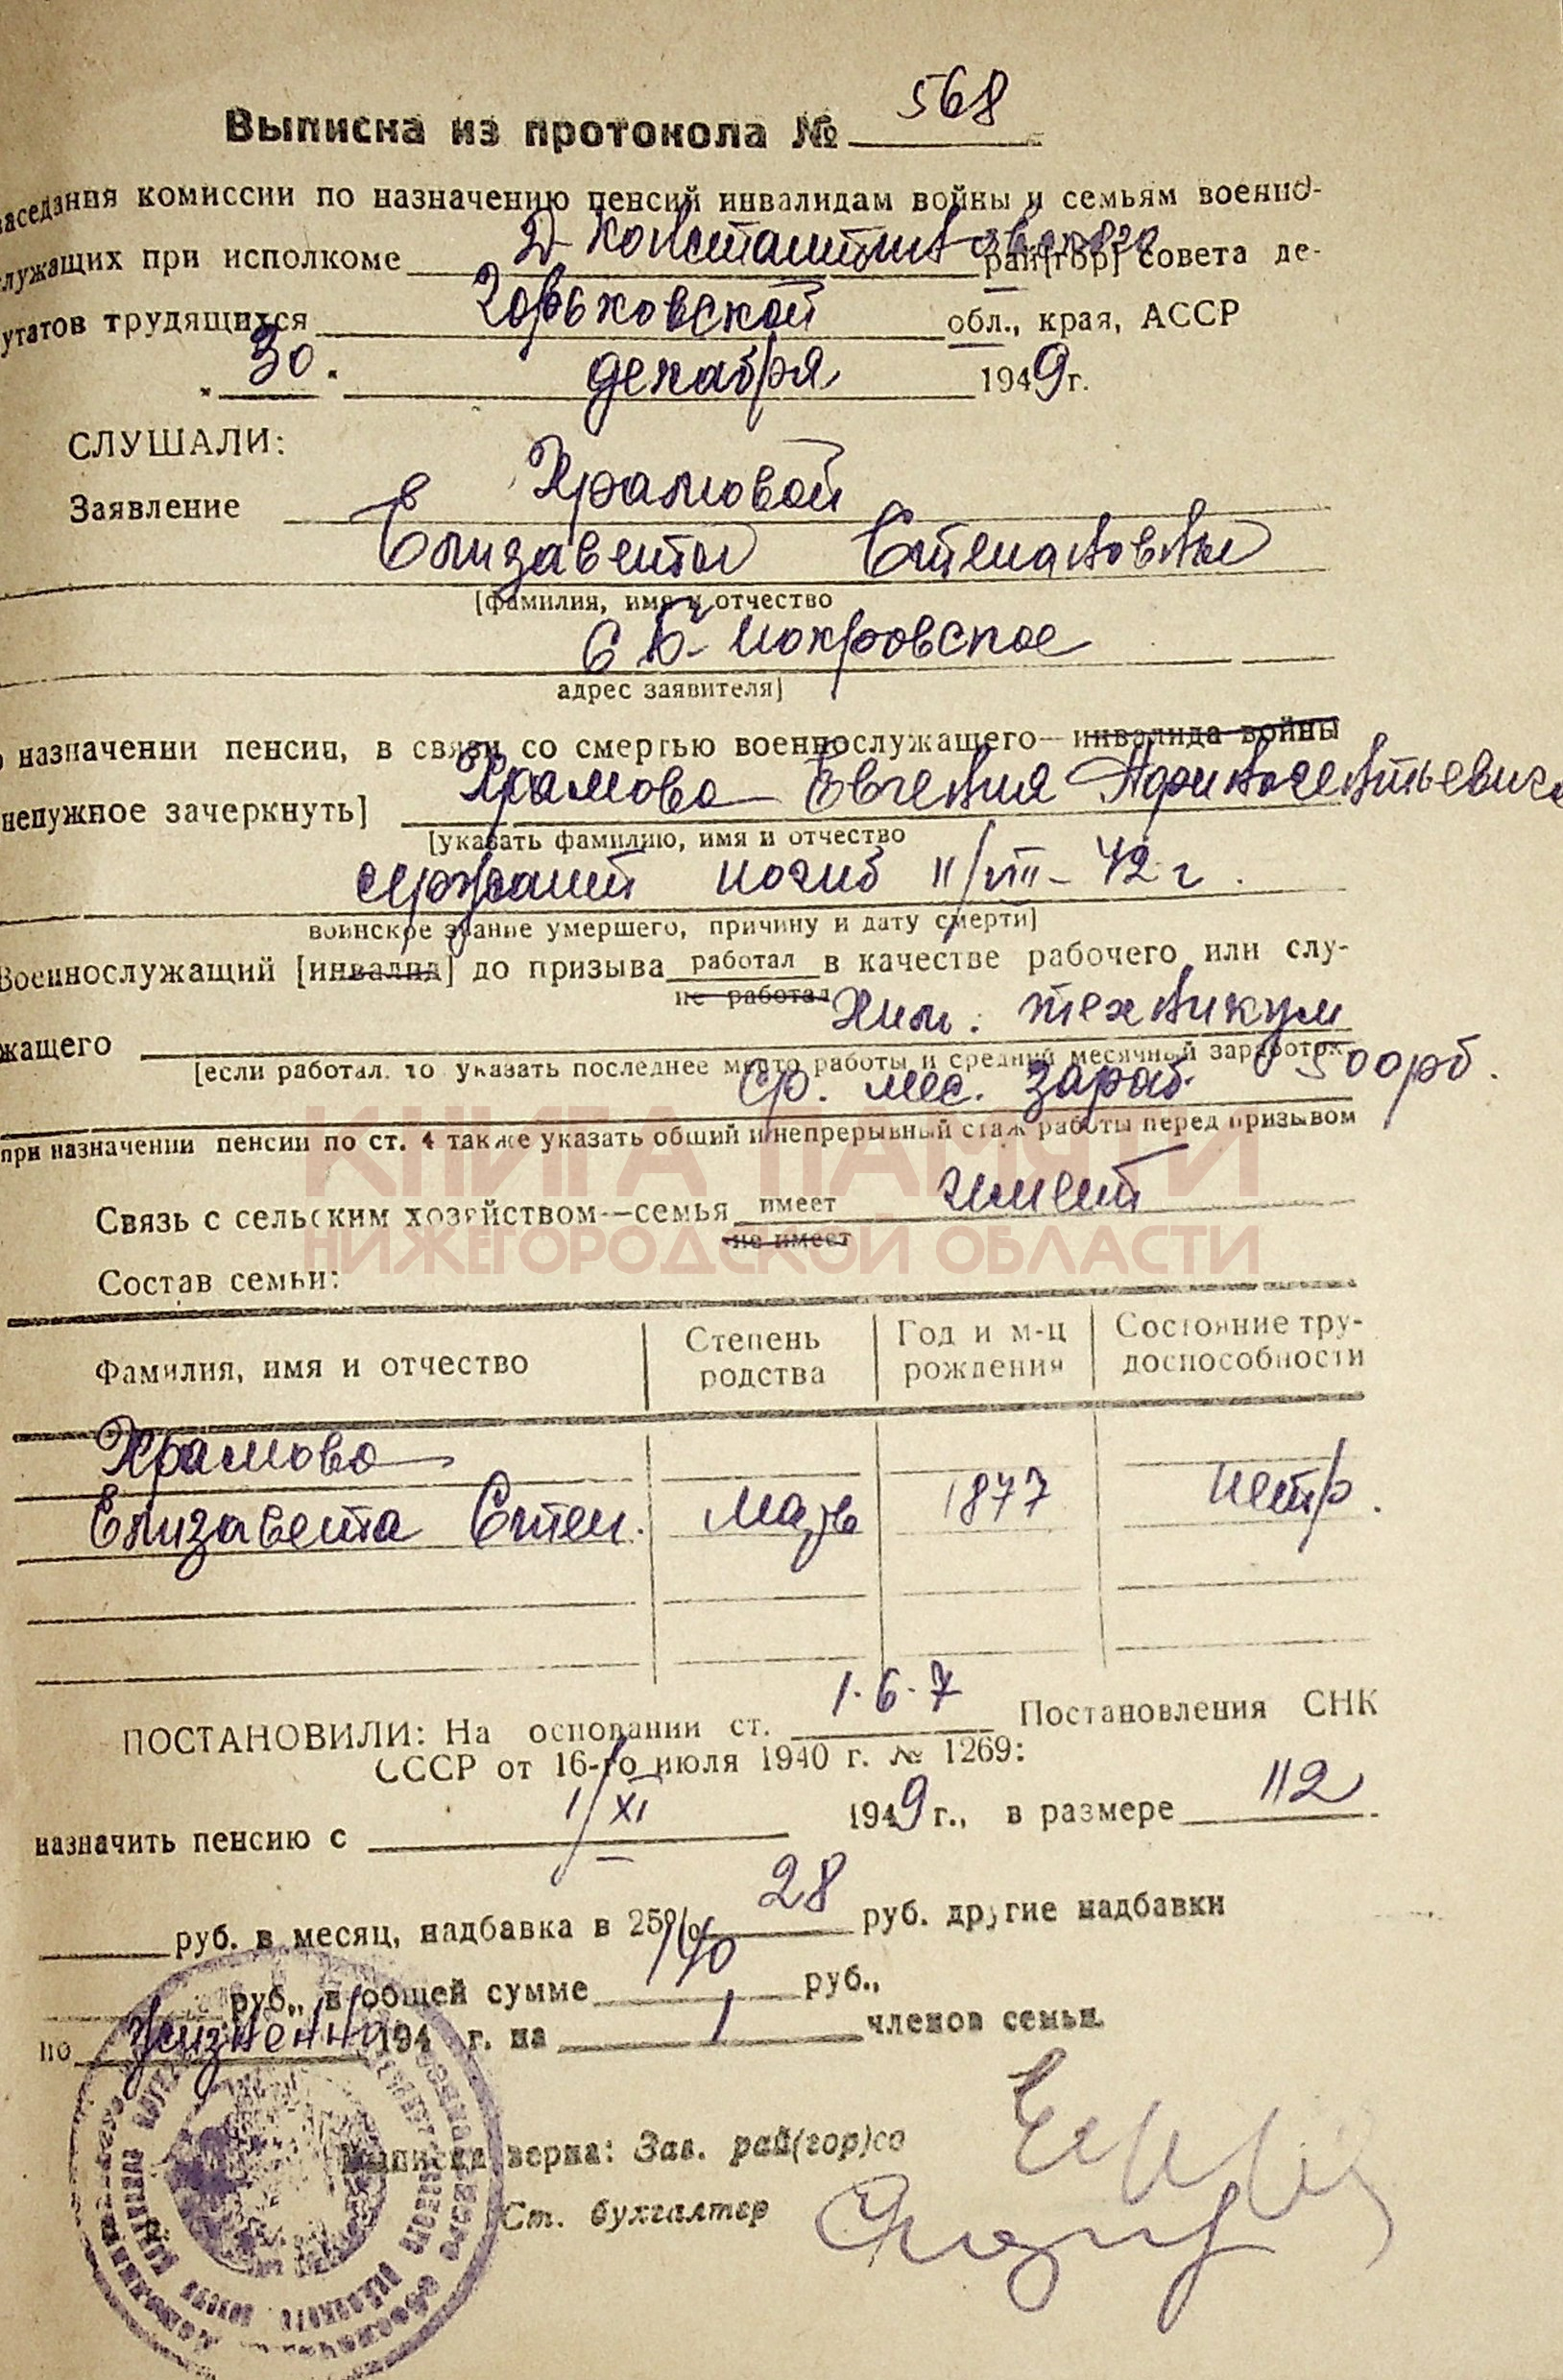 Выписка из протокола № 568
заседания комиссии по назначению пенсий инвалидам войны и семьям военно-
служащих при исполкоме Д-Константиновского рай[гор] совета де-
утатов трудящихся Горьковской обл., края, АССР
„30“ декабря 1949 г.
СЛУШАЛИ:
Заявление Храмовой
Елизаветы Степановны
[фамилия, имя и отчество
с Б-Покровское
адрес заявителя]
о назначении пенсии, в связи со смертью военнослужащего—инвалида войны
ненужное зачеркнуть] Храмова Евгения
[указать фамилию, имя и отчество
сержант погиб 11/VIII-42 г.
воинское звание умершего, причину и дату смерти]
Военнослужащий [инвалид] до призыва работал в качестве рабочего или слу-
не работал
жащего Хим. техникум
[если работал, то указать последнее место работы и средний месячный заработок
ср. мес. зараб. 500 рб.
при назначении пенсии по ст. 4 также указать общий и непрерывный стаж работы перед призывом
КНИГА ПАМЯТИ
Связь с сельским хозяйством—семья имеет имеет
не имеет
НИЖЕГОРОДСКОЙ ОБЛАСТИ
Состав семьи:
Фамилия, имя и отчество Степень родства Год и м-ц рождения Состояние тру-доспособности
Храмова
Елизавета Степ. Мать 1877 нетр.
ПОСТАНОВИЛИ: На основании ст. 1-6-7 Постановления СНК
СССР от 16-го июля 1940 г. № 1269:
назначить пенсию с 1/XI 1949 г., в размере 112
руб. в месяц, надбавка в 25% 28 руб. другие надбавки
руб., в общей сумме 140 руб.,
по жизненно 194 г. на 1 членов семьи.
Выписка верна: Зав. рай(гор)со
Ст. бухгалтер